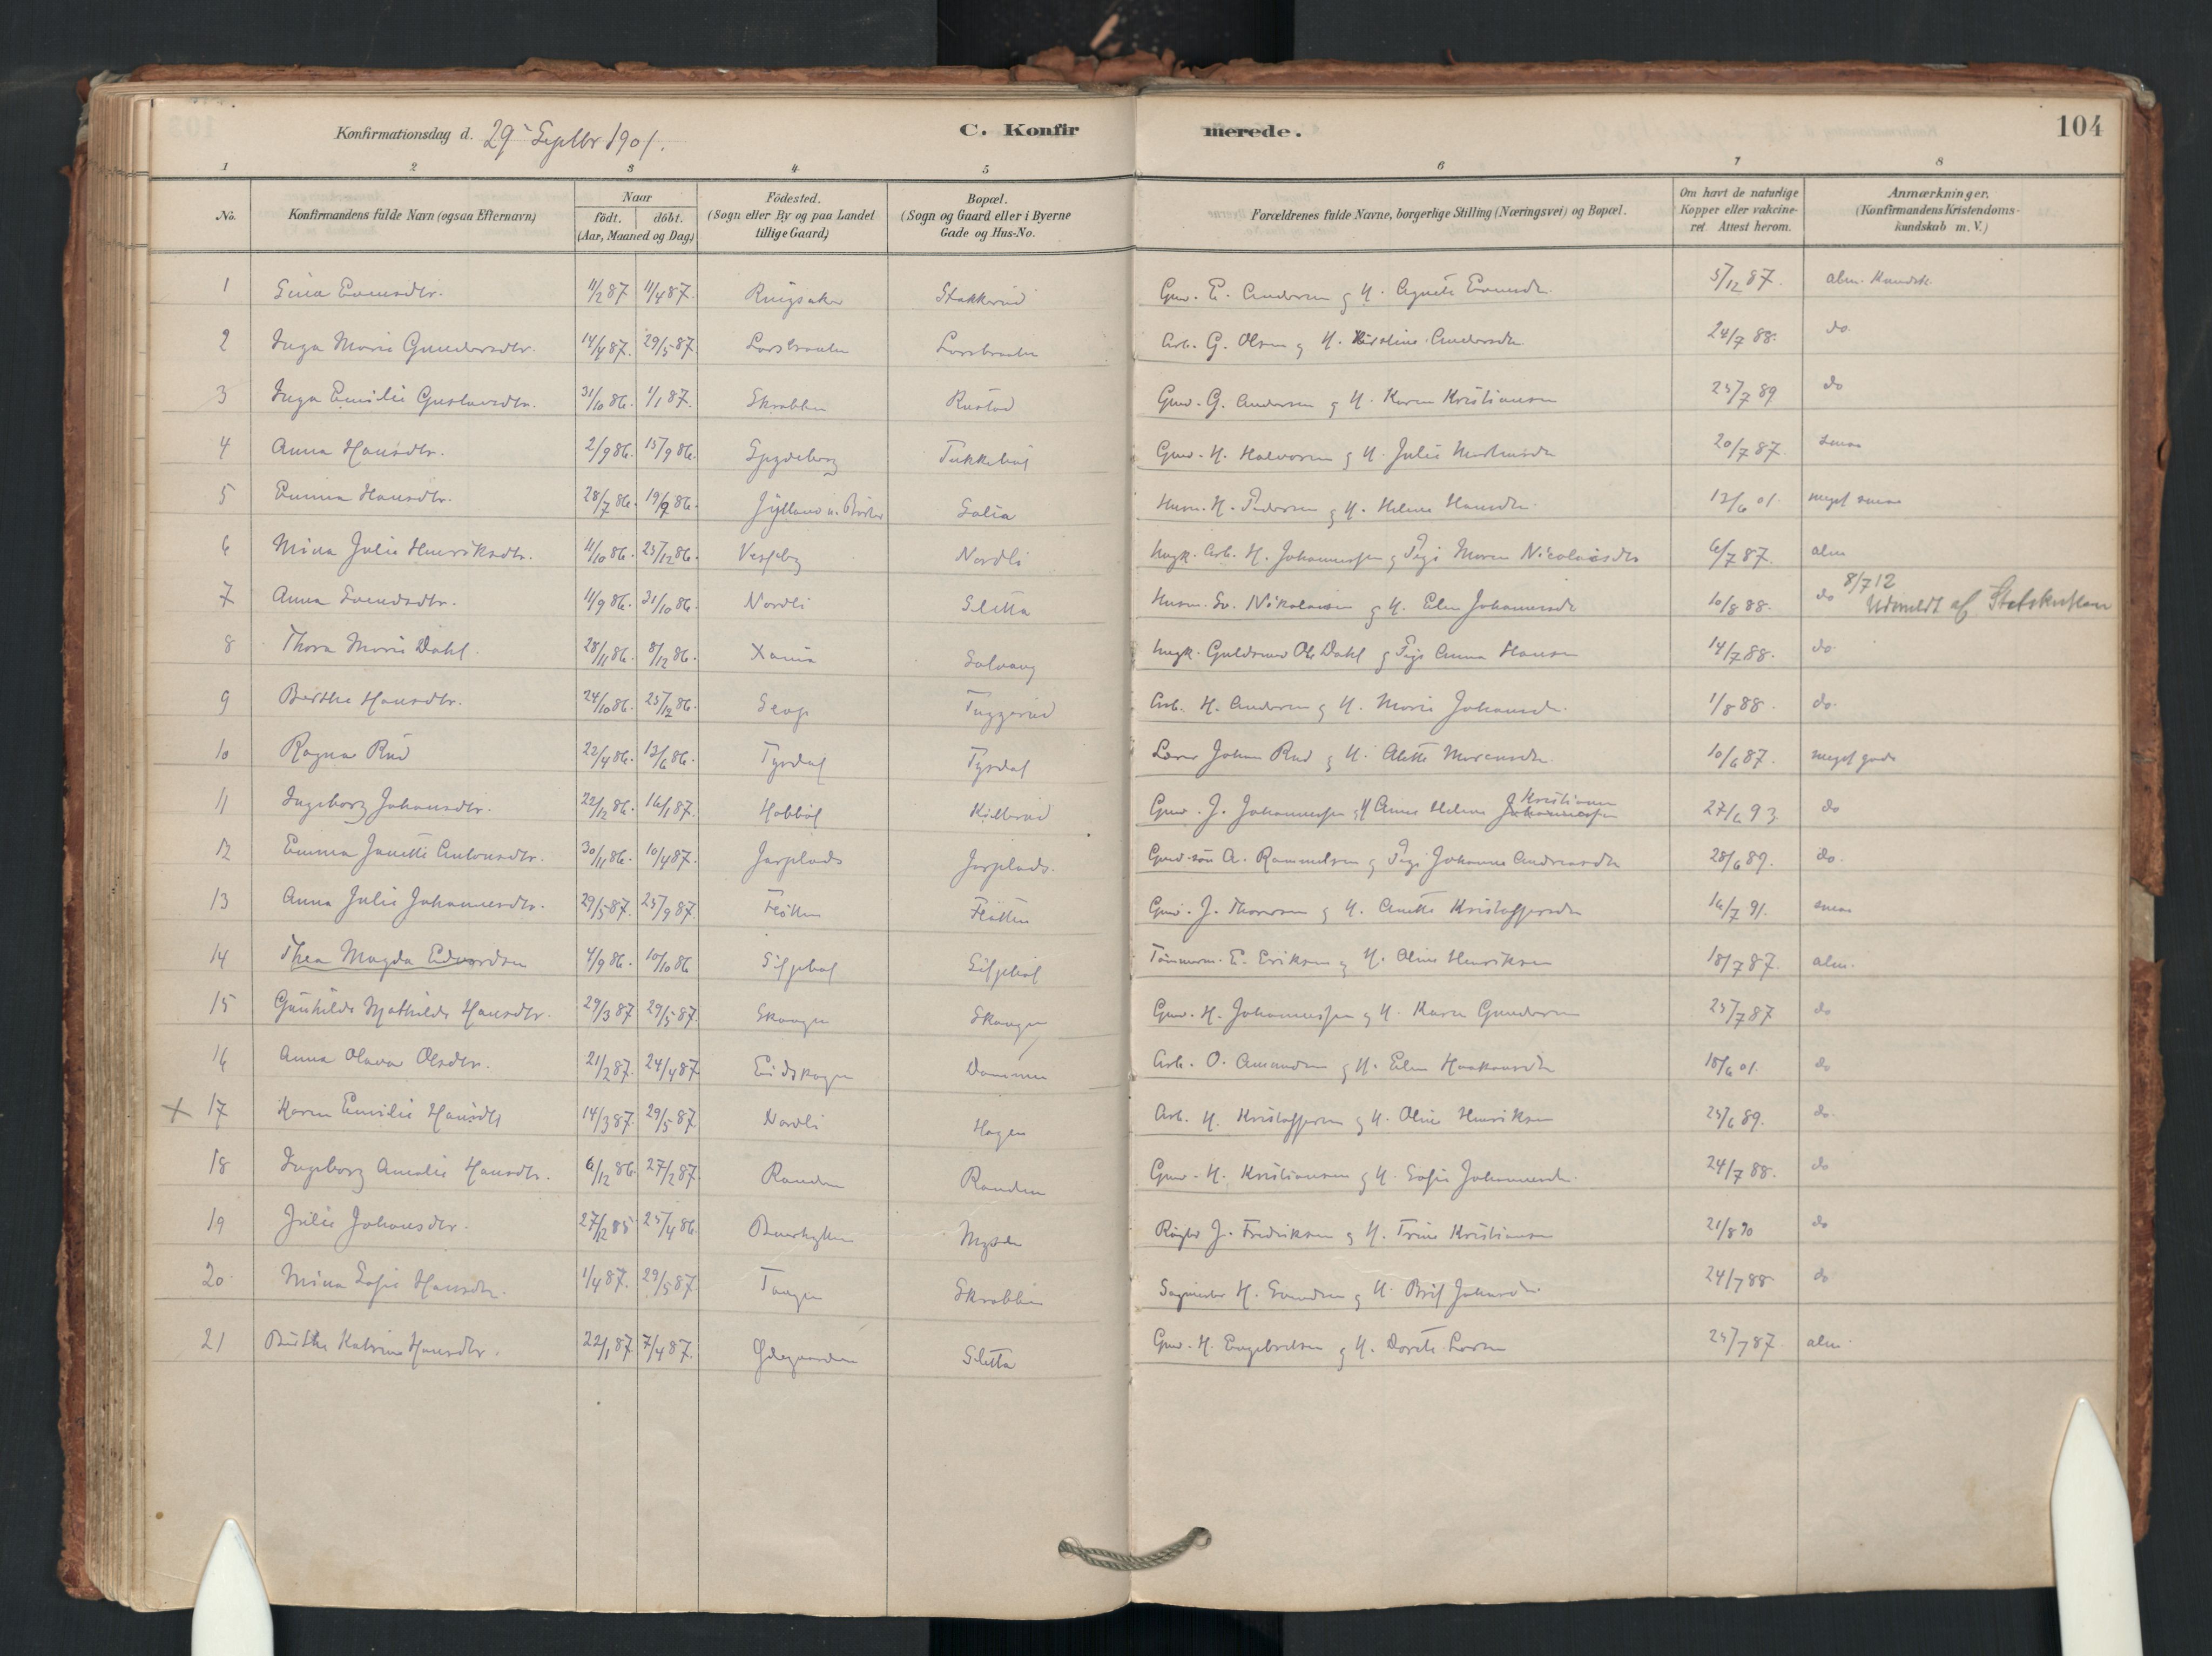 Konfirmationsdag d. 29 Septbr 1901. C. Konfirmerede. 104
1 2 3 4 5 6 7 8
No. Konfirmandens fulde Navn (ogsaa Efternavn) Naar födt. döbt. (Aar, Maaned og Dag) Födested. (Sogn eller By og paa Landet tillige Gaard) Bopæl. (Sogn og Gaard eller i Byerne Gade og Hus-No. Forældrenes fulde Navne, borgerlige Stilling (Næringsvei) og Bopæl. Om havt de naturlige Kopper eller vakcineret Attest herom. Anmærkninger. (Konfirmandens Kristendomskundskab m. V.)
1 11/2 87 11/4 87. Ringsaker Stakkerud Gmd. E. Andersen g H. Agnete 5/12 87. alm. Kundsk.
2 Inga Marie Gundersdtr. 14/4 87. 29/5 87. Larsbraaten Larsbraaten Arb. G. Olsen g H. Kristine Andersdtr 24/7 88. do.
3 Inga Emilie Gustavsdtr. 31/10 86. 1/1 87. Skrabben Rustad Gmd. G. Andersen g H. Karen Kristiansen 25/7 89 do
4 Anna Hansdtr. 2/9 86. 15/9 86. Spydeberg Gmd. H. Halvorsen g H. Julie 20/7 87. smaa
5 Emma Hansdtr. 28/7 86. 19/9 86. Solia Husm. H. Pedersen g H. Helene Hansdtr. 13/6 01. meget smaa
6 Mina Julie Henriksdtr. 11/10 86. 25/12 86. Vestby Nordli Ungk. Arb. H. Johannessen g Pige Maren Nicolaisdtr 6/7 87. alm
7 Anna Svendsdtr. 11/9 86. 31/10 86. Nordli Sletta Husm. Sv. Nikolaisen g H. Elen Johannesdtr 10/8 88. do 8/7 12 Udmeldt af Statskirken
8 Thora Marie Dahl. 28/11 86. 8/12 86. Xania Solvang Ungk. Guldsmed Ole Dahl g Pige Anna Hansen 14/7 88. do.
9 Berthe Hansdtr. 24/10 86. 25/12 86. Tuggerud Arb. H. Andersen g H. Marie Johansdtr. 1/8 88. do.
10 Ragna Rud 22/4 86. 13/6 86. Tyrdal Tyrdal Lærer Johan Rud g H. Alette 10/6 87. meget gode
11 Ingeborg Johansdtr. 22/12 86. 16/1 87. Hobböl Killerud Gmd. J. Johannessen g H Anne Helene Johannessen Kristiansen 27/6 93 do
12 Emma Janette Antonsdtr. 30/11 86. 10/4 87. Jarplads Jarplads. Gmd-sön A. g Pige Johanne Andreasdtr 28/6 89. do.
13 Anna Julie Johannesdtr. 29/5 87. 25/9 87. Flötten Flötten Gmd. J. Thoresen g H. Anette Kristoffersdtr 16/7 91. smaa
14 Thea Magda Edvardsen 4/9 86. 10/10 86 Siljebol Siljebol Tömmerm. E. Eriksen g H. Oline Henriksen 18/7 87. alm.
15 Gunhilde Mathilde Hansdtr. 29/3 87 29/5 87. Skaugen Skaugen Gmd. H. Johannessen g H. Karen Gundersen 25/7 87 do
16 Anna Olava Olsdtr. 21/2 87. 24/4 87. Eidskogen Dammen Arb. O. Amundsen g H. Elen Haakonsdtr 18/6 01. do
+ 17 Karen Emilie Hansdtr 14/3 87. 29/5 87. Nordli Hagen Arb. H. Kristoffersen g H. Oline Henriksen 25/6 89. do.
18 Ingeborg Amalie Hansdtr. 6/12 86. 27/2 87. Randem Randem Gmd. H. Kristiansen g H. Sofie Johannesdtr. 24/7 88. do
19 Julie Johansdtr. 27/12 85 25/4 86. Mysen J. Fredriksen g H. Trine Kristiansen 21/8 90 do
20. Mina Sofie Hansdtr. 1/4 87. 29/5 87. Tangen Skrabben Sagmester H. Svendsen g H. Brit 24/7 88. do
21 Berthe Katrine Hansdtr. 22/1 87. 7/4 87. Ödegaarden Sletta Gmd. H. Engebretsen g H. Dorete Larsen 25/7 87. alm.